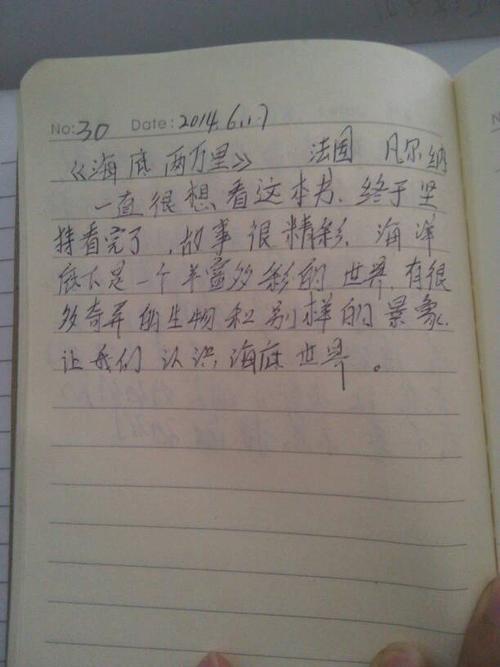 No: 30 Date: 2014.6.1.7
《海底两万里》 法国 凡尔纳
一直很想看这本书、终于坚
持看完了,故事很精彩,海洋
底下是一个丰富多彩的世界,有很
多奇异的生物和别样的景象,
让我们认识海底世界。
N